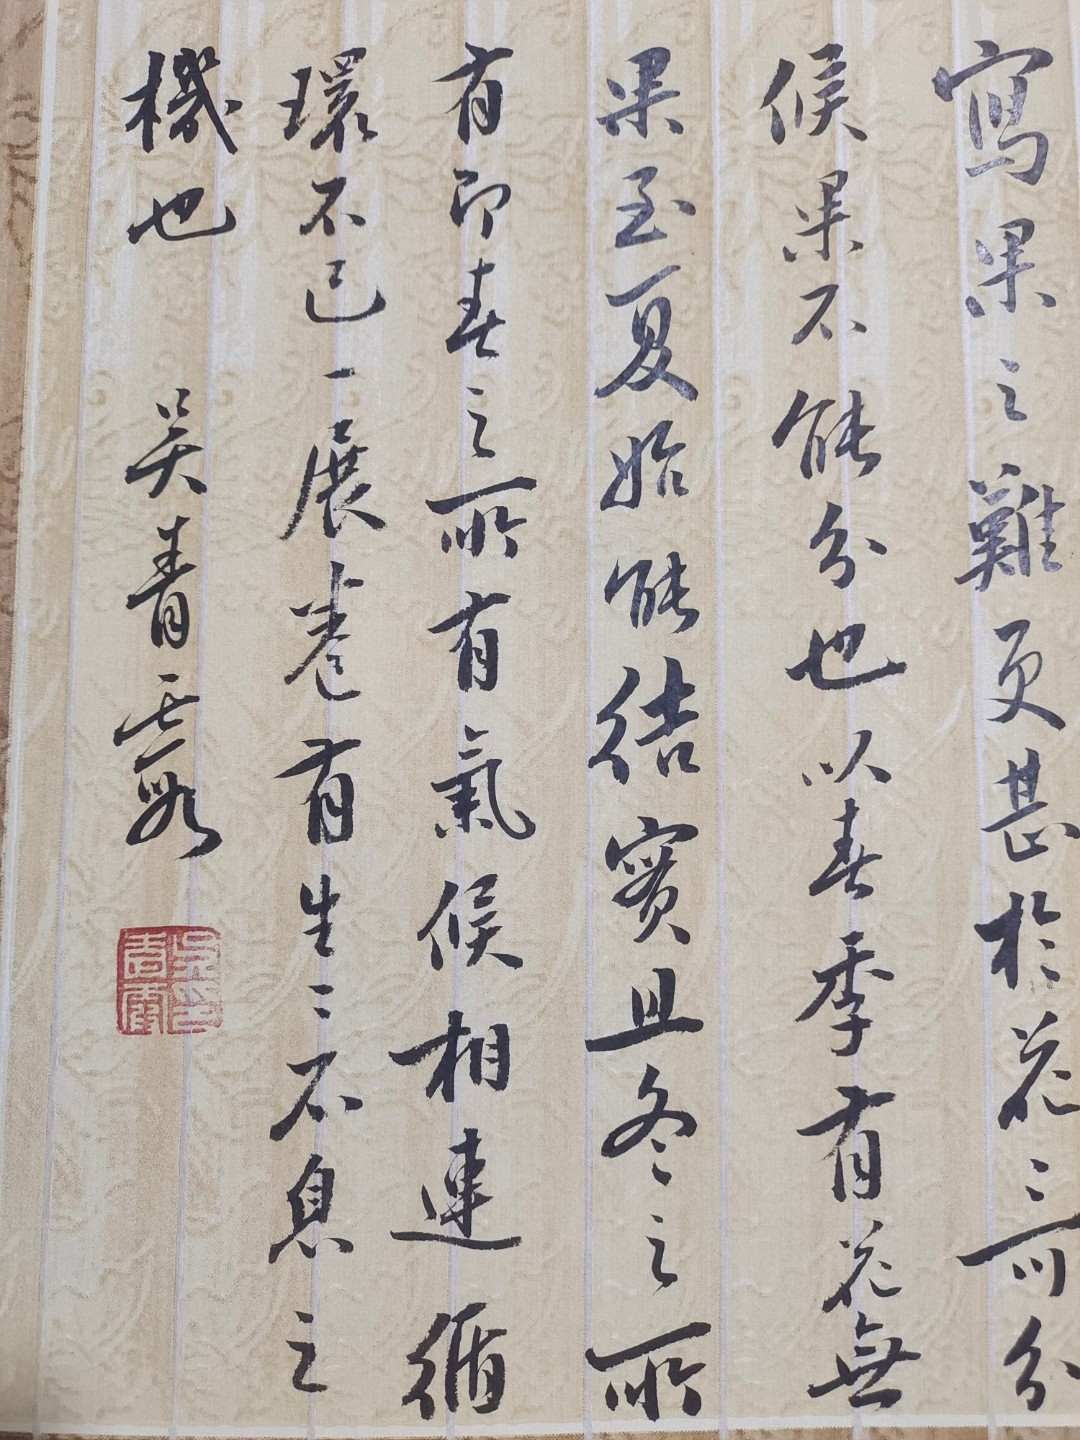 寫果之難更甚於花〻可分
候果不能分也以春季有花無
果至夏始能結實且冬之所
有即春之所有氣候相連循
環不已一展卷有生〻不息之
機也 吳青霞
吳青霞印